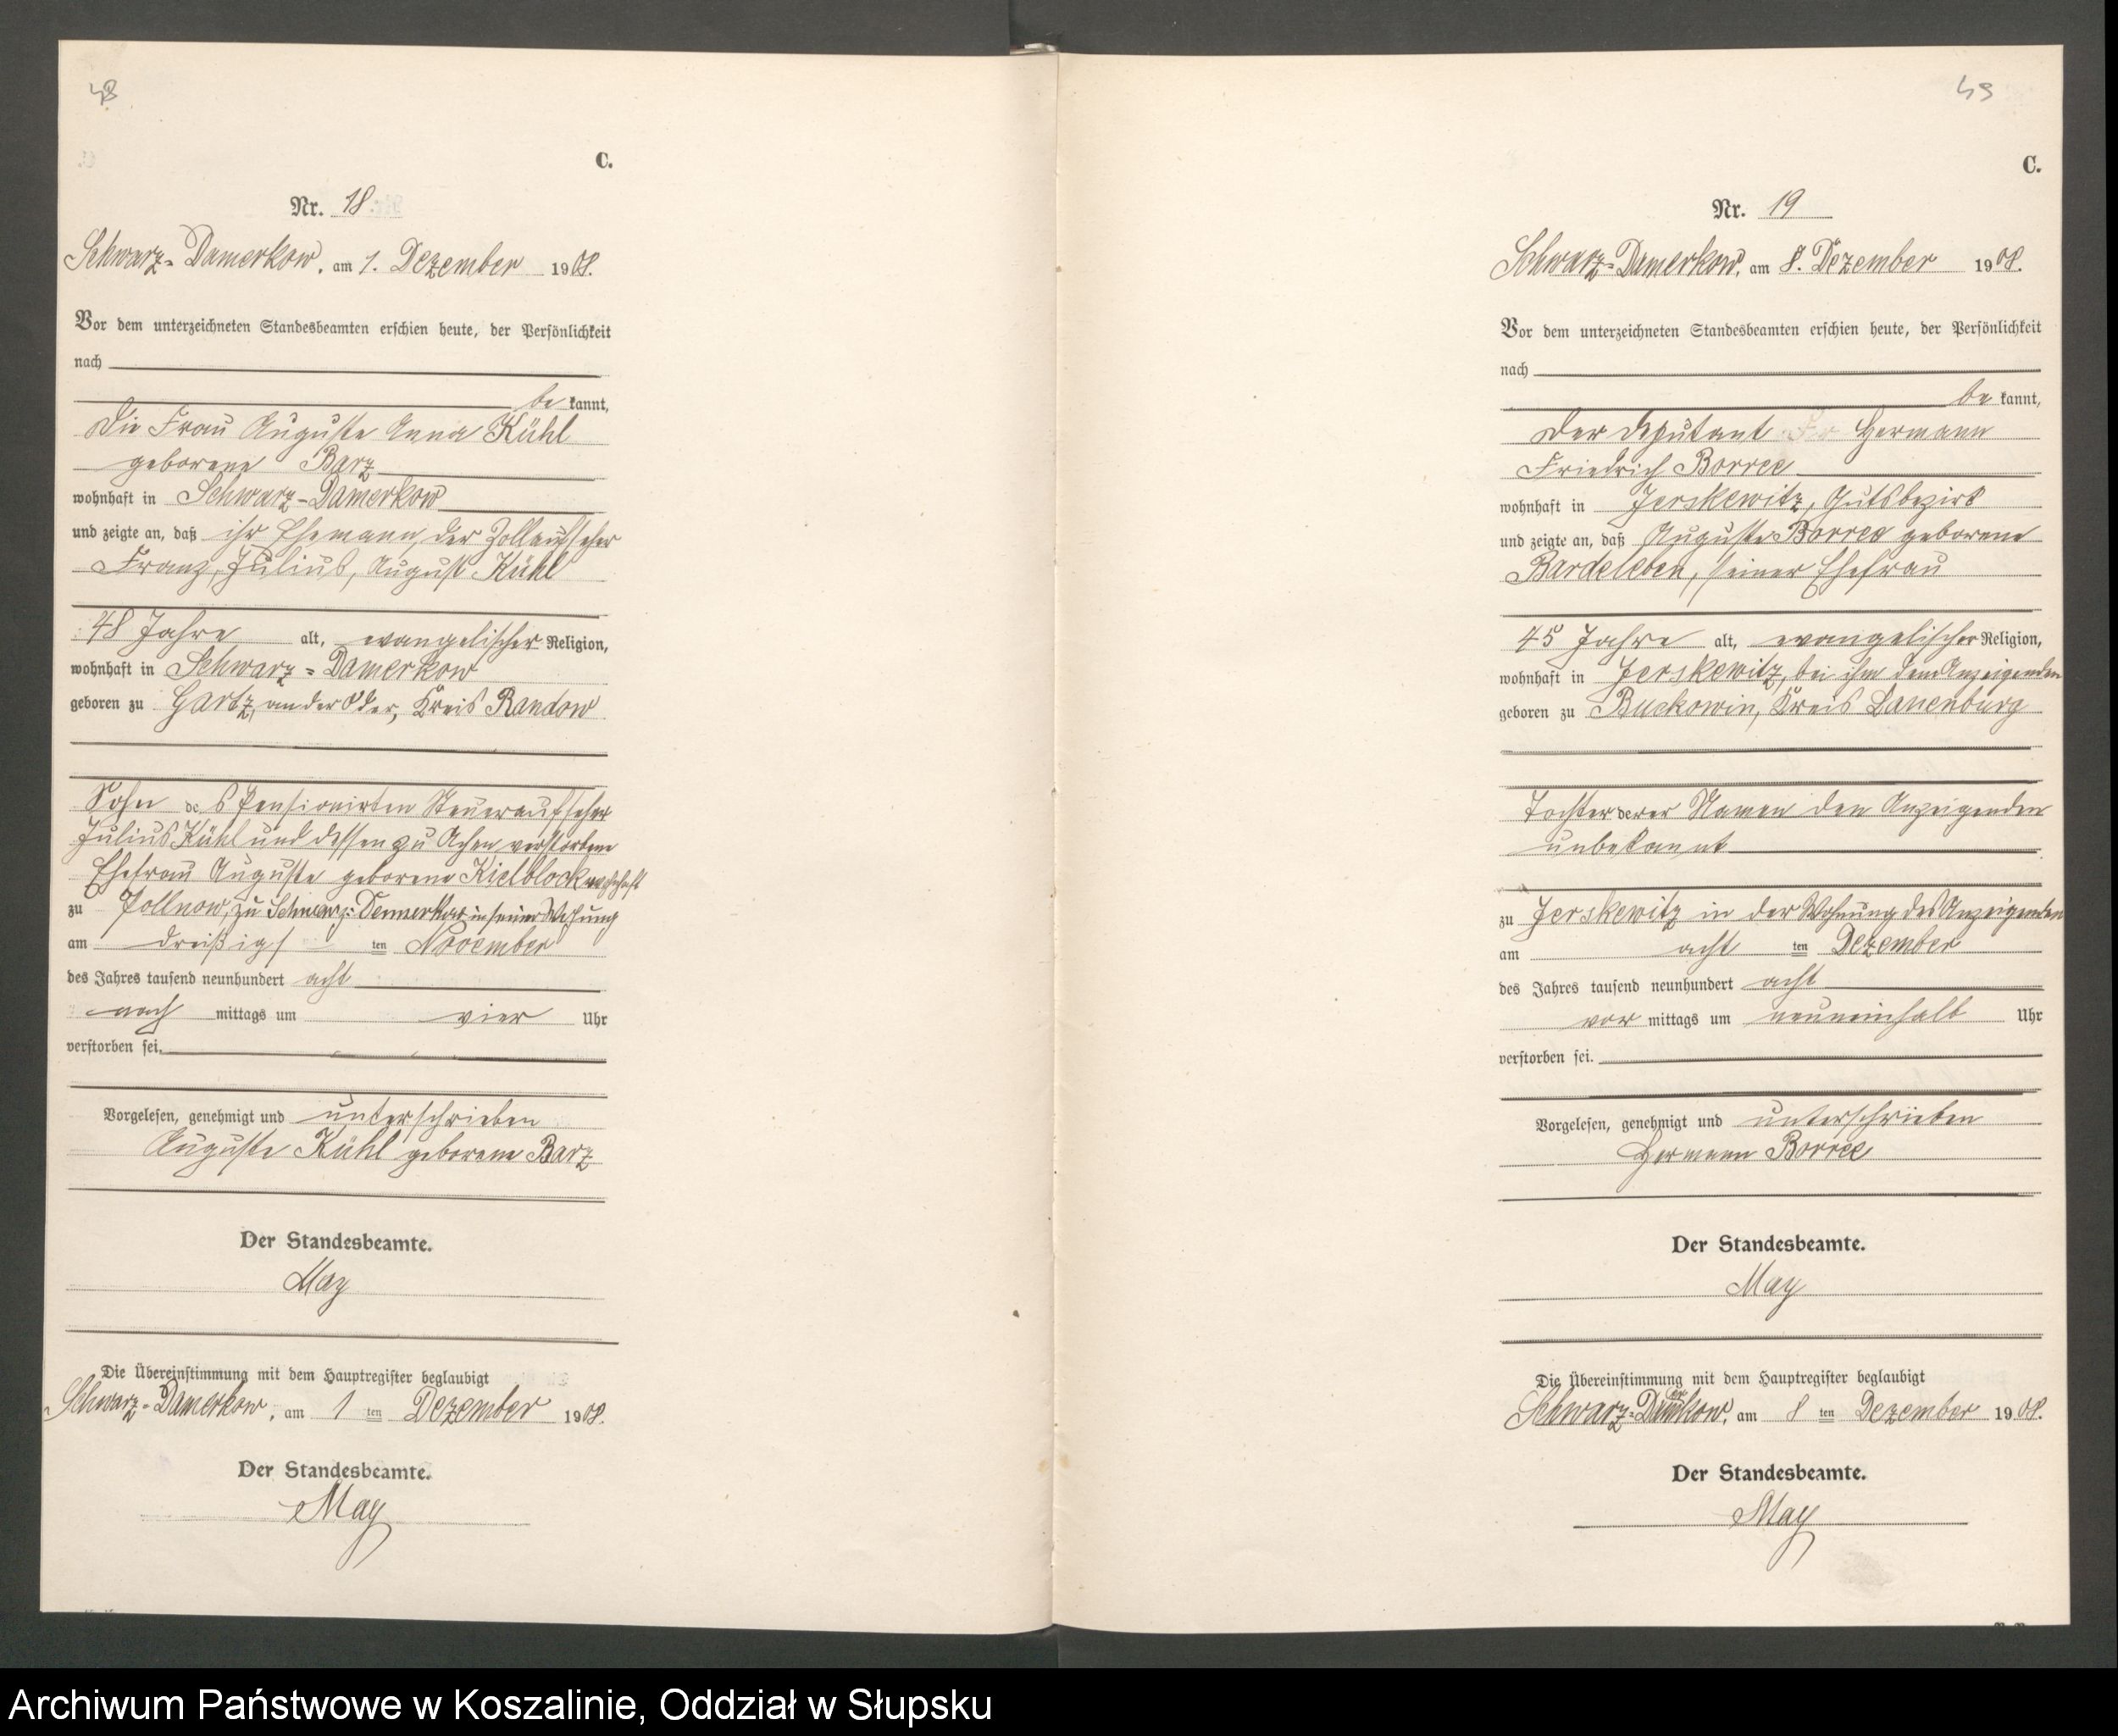 48
C.
Nr. 18.
Schwarz-Damerkow, am 1. Dezember 1908.
Vor dem unterzeichneten Standesbeamten erschien heute, der Persönlichkeit
nach
be kannt,
die Frau Auguste Anna Kühl
geborene Barz
wohnhaft in Schwarz-Damerkow
und zeigte an, daß ihr Ehemann, der Zollaufseher
Franz, Julius, August Kühl
48 Jahre alt, evangelischer Religion,
wohnhaft in Schwarz-Damerkow
geboren zu Gartz, an der Oder, Kreis Randow
Sohn des Pensionirten Steueraufseher
Julius Kühl und dessen zu Achen verstorbene
Ehefrau Auguste geborene Kielblock wohnhaft
zu Pollnow, zu Schwarz-Damerkow in seiner Wohnung
am dreißigs ten November
des Jahres tausend neunhundert acht
nach mittags um vier Uhr
verstorben sei.
Vorgelesen, genehmigt und unterschrieben
Auguste Kühl geborene Barz
Der Standesbeamte.
May
Die Übereinstimmung mit dem Hauptregister beglaubigt
Schwarz-Damerkow, am 1 ten Dezember 1908.
Der Standesbeamte.
May
49
C.
Nr. 19
Schwarz-Damerkow, am 8. Dezember 1908.
Vor dem unterzeichneten Standesbeamten erschien heute, der Persönlichkeit
nach
be kannt,
der Deputant Hermann
Friedrich Borree
wohnhaft in Jerskewitz, Gutsbezirk
und zeigte an, daß Auguste Borree geborene
Bardeleben, seiner Ehefrau
45 Jahre alt, evangelischer Religion,
wohnhaft in Jerskewitz, bei ihm dem Anzeigenden
geboren zu Buckowin, Kreis Lauenburg
Tochter derer Namen den Anzeigenden
unbekannt
zu Jerskewitz in der Wohnung des Anzeigenden
am acht ten Dezember
des Jahres tausend neunhundert acht
vor mittags um neuneinhalb Uhr
verstorben sei.
Vorgelesen, genehmigt und unterschrieben
Hermann Borree
Der Standesbeamte.
May
Die Übereinstimmung mit dem Hauptregister beglaubigt
Schwarz-Damerkow, am 8 ten Dezember 1908.
Der Standesbeamte.
May
Archiwum Państwowe w Koszalinie, Oddział w Słupsku